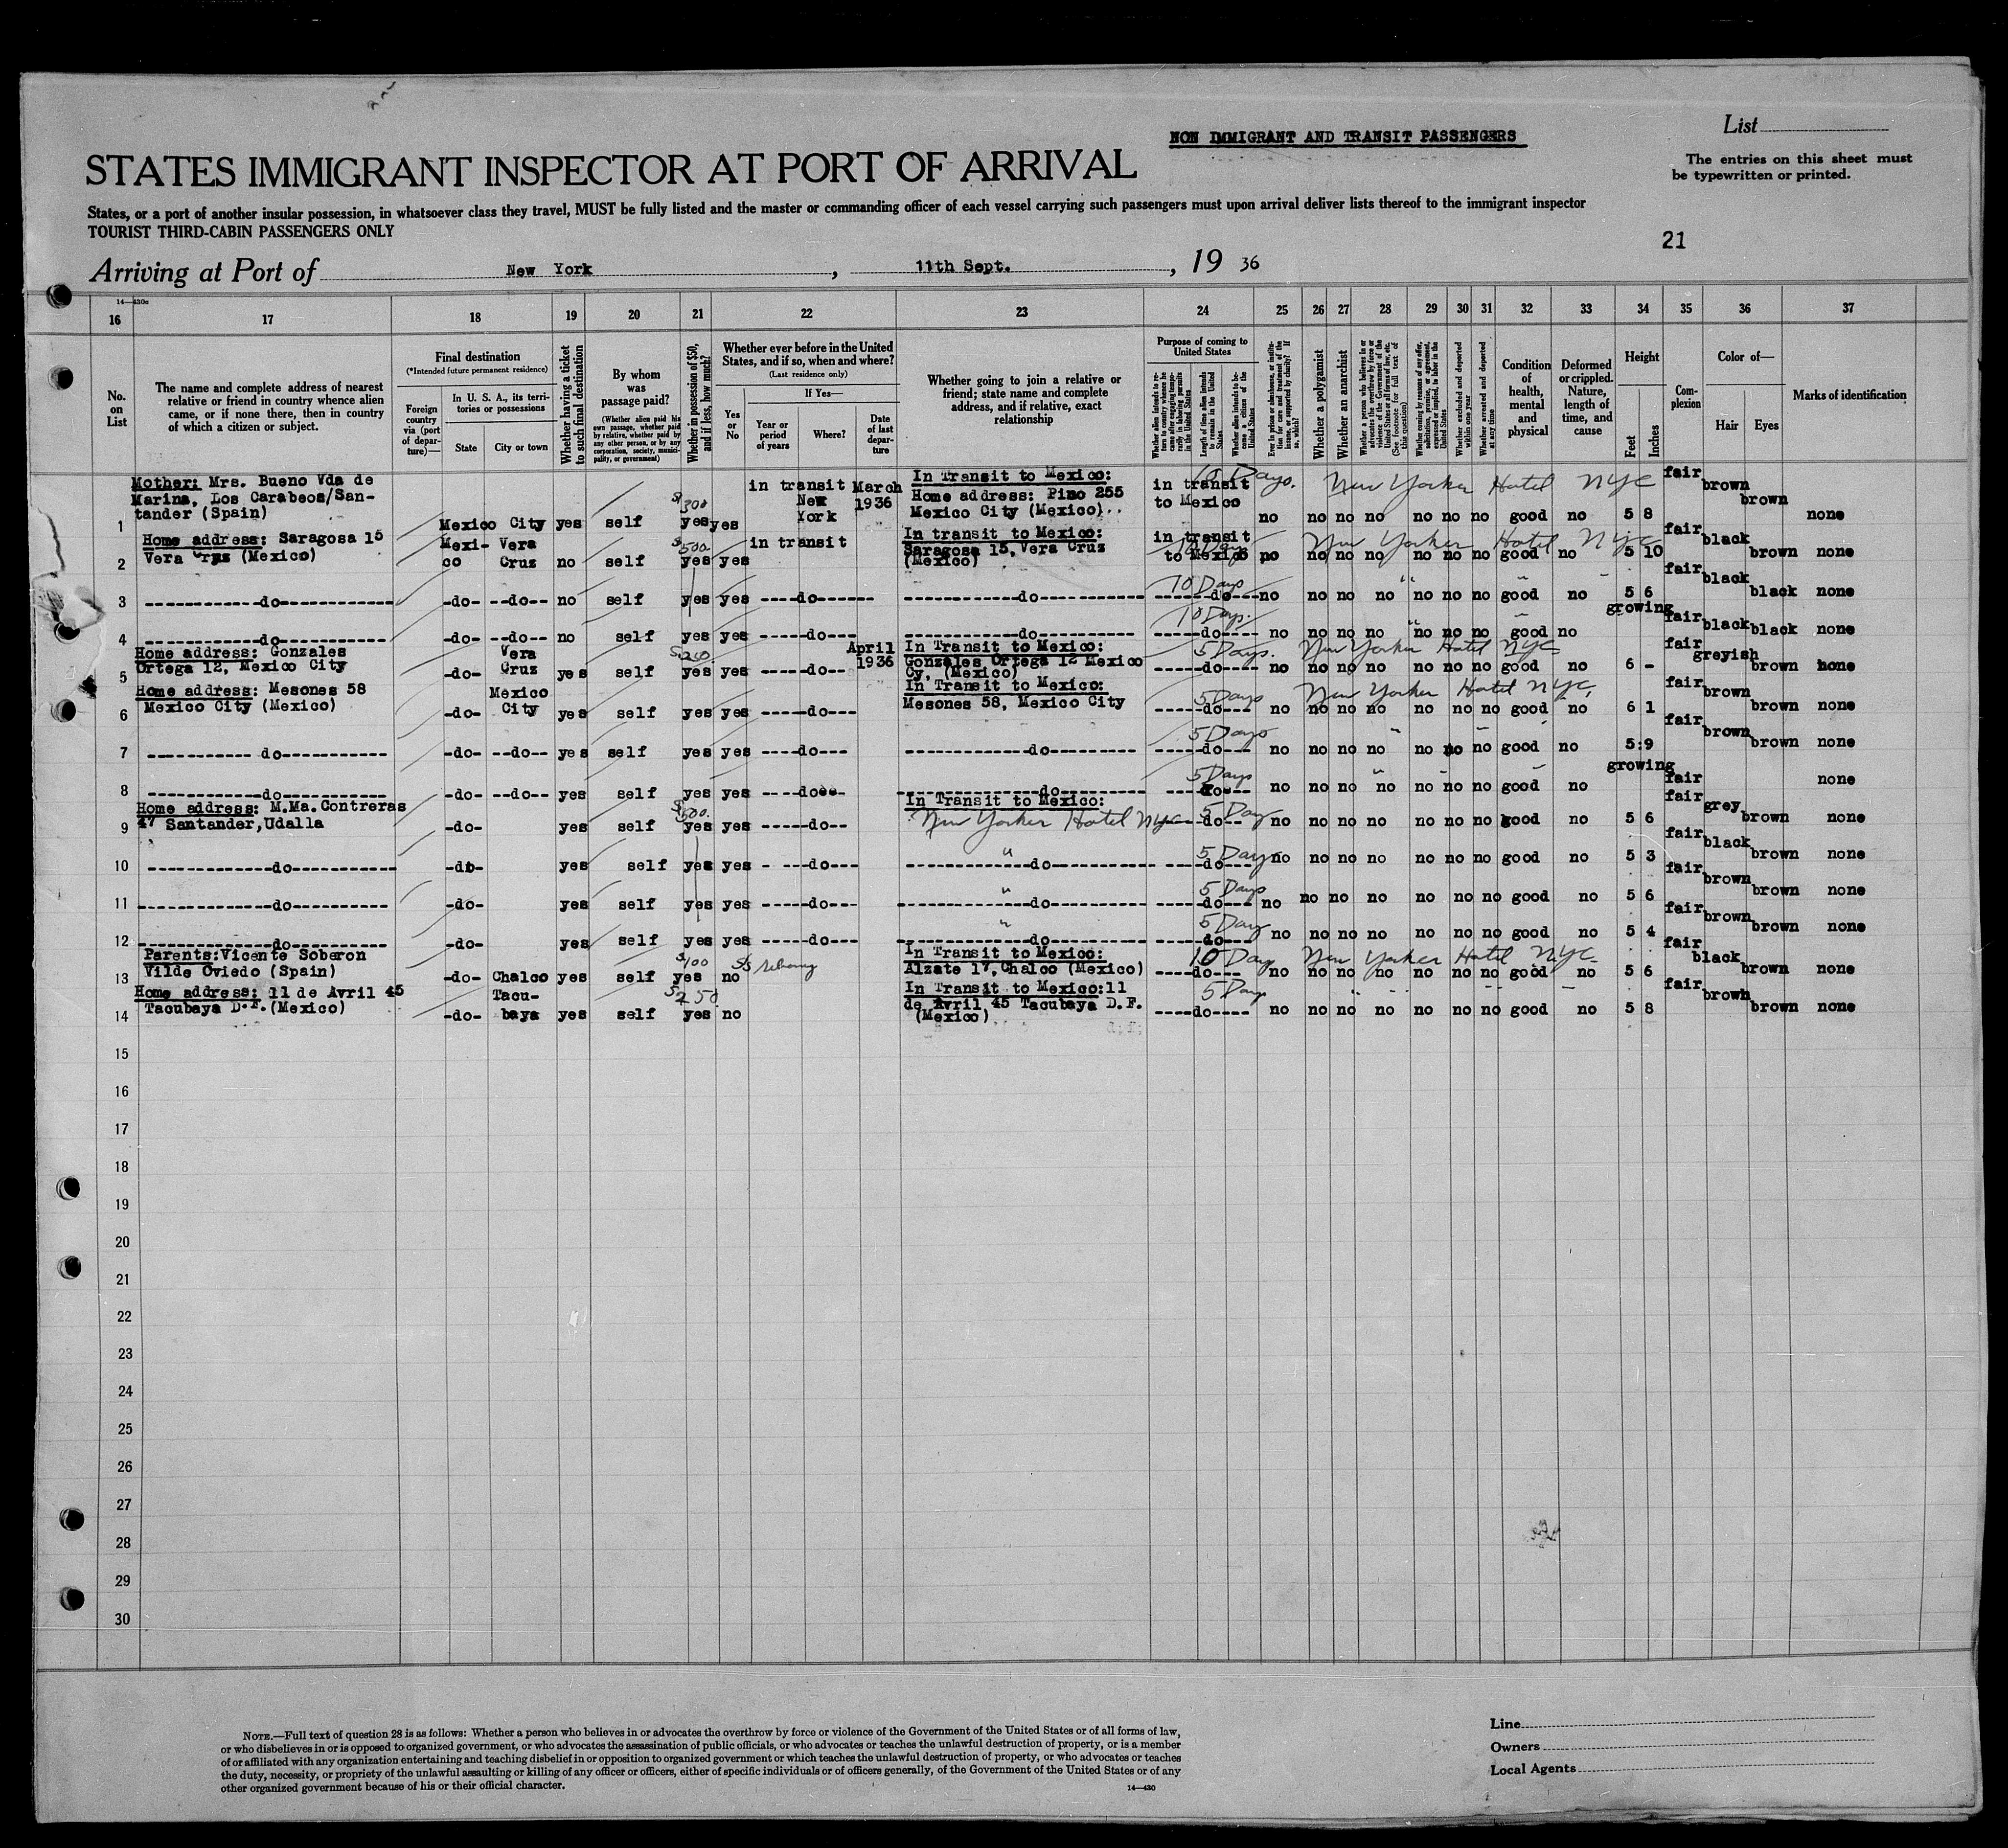 NON IMMIGRANT AND TRANSIT PASSENGERS
List
STATES IMMIGRANT INSPECTOR AT PORT OF ARRIVAL
The entries on this sheet must
be typewritten or printed.
States, or a port of another insular possession, in whatsoever class they travel, MUST be fully listed and the master or commanding officer of each vessel carrying such passengers must upon arrival deliver lists thereof to the immigrant inspector
TOURIST THIRD-CABIN PASSENGERS ONLY
21
Arriving at Port of New York, 11th Sept., 19 36
14—430a
16 17 18 19 20 21 22 23 24 25 26 27 28 29 30 31 32 33 34 35 36 37
No. on List
The name and complete address of nearest
relative or friend in country whence alien
came, or if none there, then in country
of which a citizen or subject.
Final destination
(*Intended future permanent residence)
Foreign country via (port of departure)—
In U. S. A., its territories or possessions
State City or town
Whether having a ticket to such final destination
By whom was passage paid?
(Whether alien paid his own passage, whether paid by relative, whether paid by any other person, or by any corporation, society, municipality, or government)
Whether in possession of $50, and if less, how much?
Whether ever before in the United States, and if so, when and where?
(Last residence only)
Yes or No
If Yes—
Year or period of years Where? Date of last departure
Whether going to join a relative or
friend; state name and complete
address, and if relative, exact
relationship
Purpose of coming to United States
Length of time alien intends to remain in the United States
Whether alien intends to become a citizen of the United States
Whether a polygamist
Whether an anarchist
Whether excluded and deported within one year
Whether arrested and deported at any time
Condition of health, mental and physical
Deformed or crippled. Nature, length of time, and cause
Height
Feet Inches
Complexion
Color of—
Hair Eyes
Marks of identification
Mother: Mrs. Bueno Vda de
Marina, Los Carabeos/San-
tander (Spain)
1 Mexico City yes self $300 yes yes in transit New York March 1936 In Transit to Mexico: Home address: Pino 255 Mexico City (Mexico).. in transit to Mexico 10 Days. New Yorker Hotel NYC no no no no no no no good no 5 8 fair brown brown none
Home address: Saragosa 15
Vera Cruz (Mexico)
2 Mexi-co Vera Cruz no self $500 yes yes in transit In transit to Mexico: Saragosa 15, Vera Cruz (Mexico) in transit to Mexico 10 Days no New Yorker Hotel NYC no no no no no no good no 5 10 fair black brown none
3 do -do- --do-- no self yes yes ----do---- do 10 Days do no no no no no no no good no 5 6 fair black black none
4 do -do- --do-- no self yes yes ----do--- do 10 Days. do no no no no no no no good no growing fair black black none
Home address: Gonzales
Ortega 12, Mexico City
5 -do- Vera Cruz yes self yes yes ----do-- April 1936 In Transit to Mexico: Gonzales Ortega 12 Mexico Cy, (Mexico) 5 Days. do no New Yorker Hotel NYC no no no no no no good no 6 - fair greyish brown none
Home address: Mesones 58
Mexico City (Mexico)
6 -do- Mexico City yes self yes yes ----do--- In Transit to Mexico: Mesones 58, Mexico City 5 Days do no New Yorker Hotel NYC, no no no no no no good no 6 1 fair brown brown none
7 do -do- --do-- yes self yes yes ----do--- do 5 Days do no no no no no no no good no 5:9 fair brown brown none
8 do -do- --do-- yes self yes yes do do 5 Days do no no no no no no no good no growing fair none
Home address: M.Ma. Contreras
47 Santander,Udalla
9 -do- yes self $500. yes yes -----do-- In Transit to Mexico: New Yorker Hotel NYC 5 Day do no no no no no no no good no 5 6 fair grey brown none
10 do -do- yes self yes yes ----do--- " do 5 Days do no no no no no no no good no 5 3 fair black brown none
11 do -do- yes self yes yes -----do-- " do 5 Days do no no no no no no no good no 5 6 fair brown brown none
12 do -do- yes self yes yes -----do-- " do 5 Day do no no no no no no no good no 5 4 fair brown brown none
Parents:Vicente Soberon
Vilde Oviedo (Spain)
13 -do- Chalco yes self $100 yes no In Transit to Mexico: Alzate 17, Chalco (Mexico) 10 Day do no New Yorker Hotel NYC no no no no no no good no 5 6 fair black brown none
Home address: 11 de Avril 45
Tacubaya D.F.(Mexico)
14 -do- Tacu-baya yes self $250 yes no In Transit to Mexico:11 de Avril 45 Tacubaya D.F. (Mexico) 5 Day do no no no no no no no good no 5 8 fair brown brown none
15
16
17
18
19
20
21
22
23
24
25
26
27
28
29
30
NOTE.—Full text of question 28 is as follows: Whether a person who believes in or advocates the overthrow by force or violence of the Government of the United States or of all forms of law,
or who disbelieves in or is opposed to organized government, or who advocates the assassination of public officials, or who advocates or teaches the unlawful destruction of property, or is a member
of or affiliated with any organization entertaining and teaching disbelief in or opposition to organized government or which teaches the unlawful destruction of property, or who advocates or teaches
the duty, necessity, or propriety of the unlawful assaulting or killing of any officer or officers, either of specific individuals or of officers generally, of the Government of the United States or of any
other organized government because of his or their official character.
14—430
Line
Owners
Local Agents